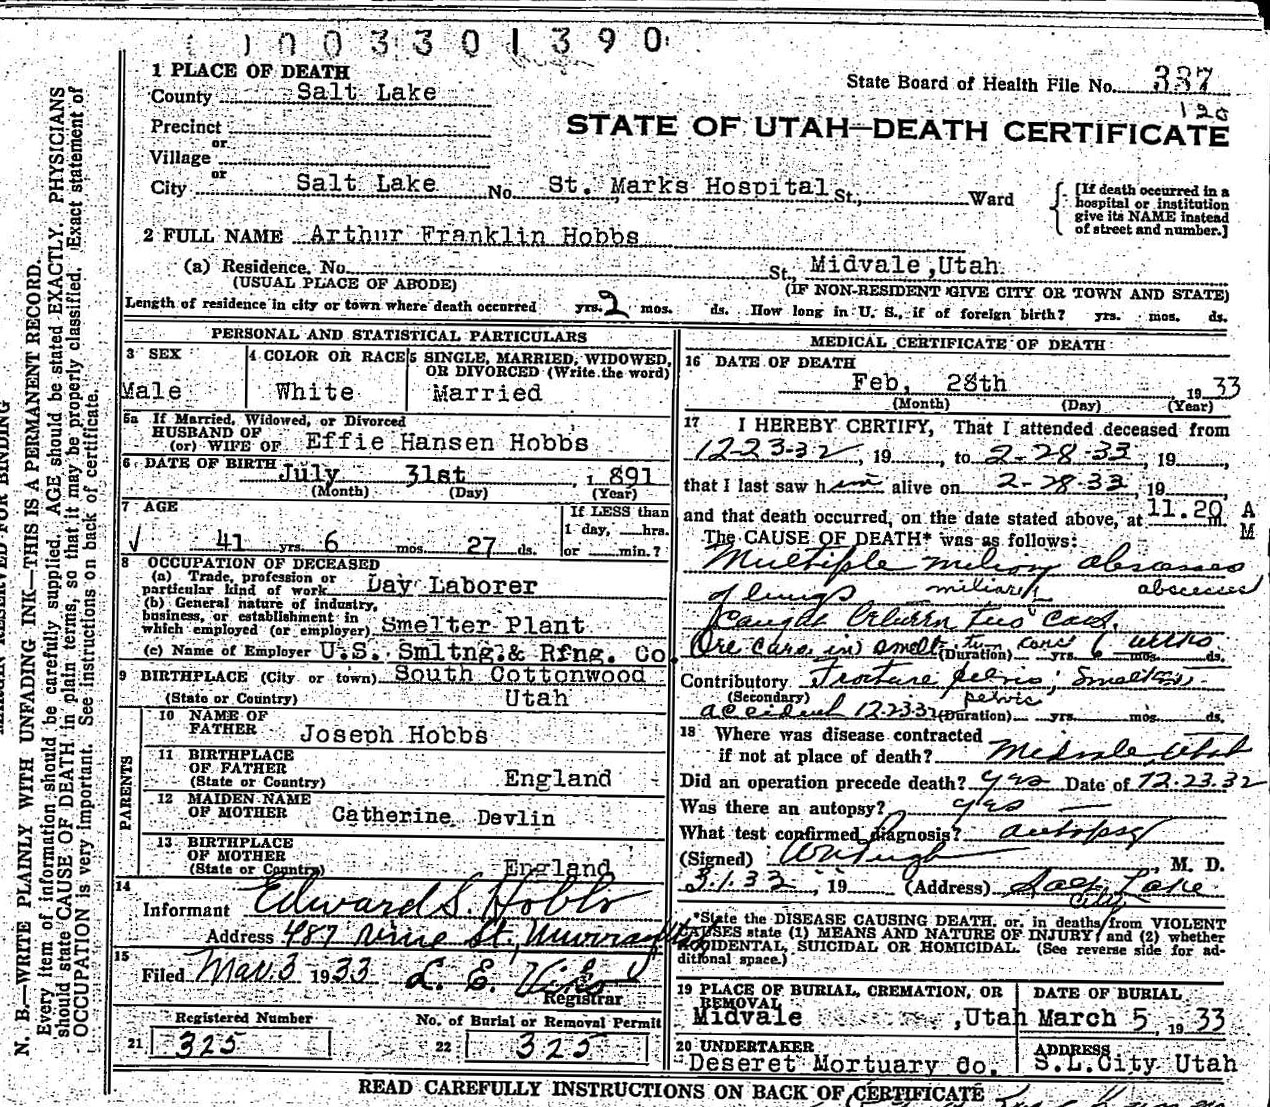 003301390
1 PLACE OF DEATH
State Board of Health File No. 337
County Salt Lake
120
Precinct
or
STATE OF UTAH—DEATH CERTIFICATE
Village
or
City Salt Lake No. St. Marks Hospital St., Ward
[If death occurred in a
hospital or institution
give its NAME instead
of street and number.]
2 FULL NAME Arthur Franklin Hobbs
(a) Residence, No. St., Midvale, Utah
(USUAL PLACE OF ABODE) (IF NON-RESIDENT GIVE CITY OR TOWN AND STATE)
Length of residence in city or town where death occurred yrs. 2 mos. ds. How long in U. S., if of foreign birth? yrs. mos. ds.
PERSONAL AND STATISTICAL PARTICULARS
3 SEX
Male
4 COLOR OR RACE
White
5 SINGLE, MARRIED, WIDOWED,
OR DIVORCED (Write the word)
Married
5a If Married, Widowed, or Divorced
HUSBAND OF
(or) WIFE OF Effie Hansen Hobbs
6 DATE OF BIRTH July 31st, 1891
(Month) (Day) (Year)
7 AGE
If LESS than
1 day, hrs.
or min.?
41 yrs. 6 mos. 27 ds.
8 OCCUPATION OF DECEASED
(a) Trade, profession or
particular kind of work Day Laborer
(b) General nature of industry,
business, or establishment in
which employed (or employer) Smelter Plant
(c) Name of Employer U.S. Smltng & Rfng. Co.
9 BIRTHPLACE (City or town) South Cottonwood
(State or Country) Utah
PARENTS
10 NAME OF
FATHER Joseph Hobbs
11 BIRTHPLACE
OF FATHER
(State or Country) England
12 MAIDEN NAME
OF MOTHER Catherine Devlin
13 BIRTHPLACE
OF MOTHER
(State or Country) England
14
Informant Edward S. Hobbs
Address 487 Vine St, Murray
15
Filed Mar. 3 1933 L. E. Viko
Registrar
Registered Number
21 325
No. of Burial or Removal Permit
22 325
MEDICAL CERTIFICATE OF DEATH
16 DATE OF DEATH
Feb, 28th 1933
(Month) (Day) (Year)
17 I HEREBY CERTIFY, That I attended deceased from
12-23-32, 19, to 2-28-33, 19,
that I last saw him alive on 2-28-33, 19,
and that death occurred, on the date stated above, at 11.20 A m.
M
The CAUSE OF DEATH* was as follows:
Multiple miliary abscesses
of lungs miliary abscesses
Caught between two cars.
Ore cars in smelt (Duration) yrs. 6 weeks mos. ds.
Contributory Fracture pelvis; Smelter
(Secondary) pelvis
accident 12-23-32 (Duration) yrs. mos. ds.
18 Where was disease contracted
if not at place of death? Midvale, Utah
Did an operation precede death? yes Date of 12-23-32
Was there an autopsy? yes
What test confirmed diagnosis? autopsy
(Signed) M. D.
3.1.33, 19 (Address) Salt Lake
City
*State the DISEASE CAUSING DEATH, or, in deaths from VIOLENT
CAUSES state (1) MEANS AND NATURE OF INJURY; and (2) whether
ACCIDENTAL, SUICIDAL OR HOMICIDAL. (See reverse side for ad-
ditional space.)
19 PLACE OF BURIAL, CREMATION, OR
REMOVAL
Midvale, Utah
DATE OF BURIAL
March 5, 1933
20 UNDERTAKER
Deseret Mortuary Co.
ADDRESS
S.L.City Utah
READ CAREFULLY INSTRUCTIONS ON BACK OF CERTIFICATE
MARGIN RESERVED FOR BINDING
N. B.—WRITE PLAINLY WITH UNFADING INK—THIS IS A PERMANENT RECORD.
Every item of information should be carefully supplied. AGE should be stated EXACTLY. PHYSICIANS
should state CAUSE OF DEATH in plain terms, so that it may be properly classified. Exact statement of
OCCUPATION is very important. See instructions on back of certificate.